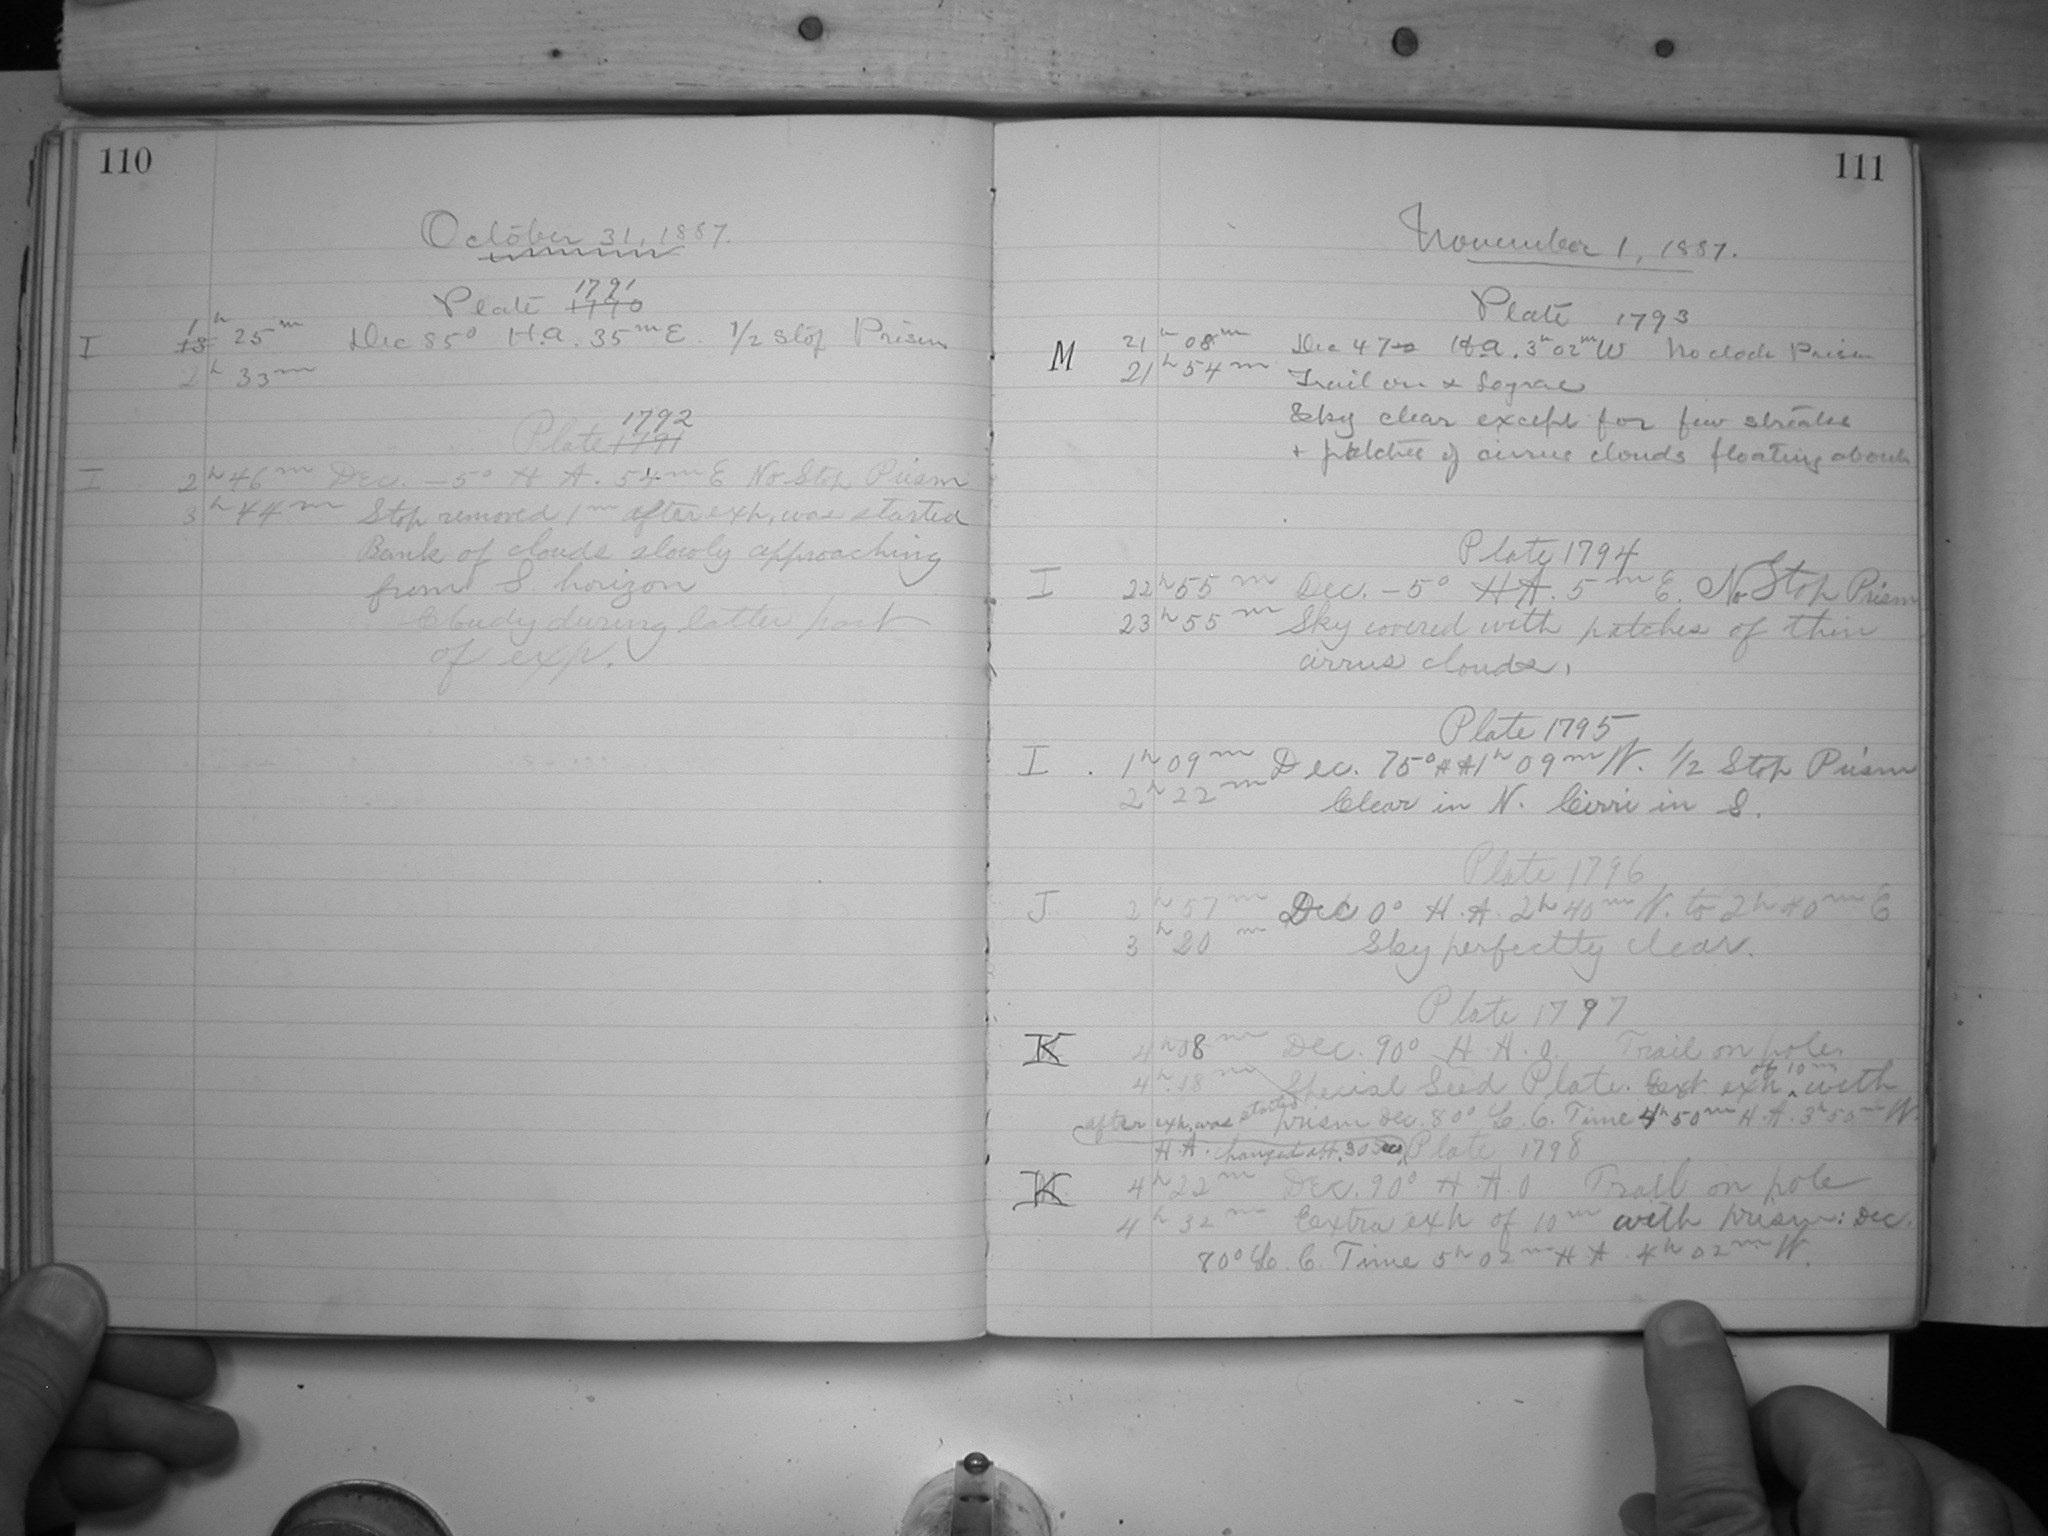 110
October 31, 1887.
1791
Plate 1790
I 1 13 h 25 m Dec 85° H.A. 35m E. 1/2 stop Prism
2 h 33 m
1792
Plate 1791
I 2 h 46 m Dec. -5° H A. 54 m E No Stop Prism
3 h 44 m Stop removed 1 m after exp. was started
Bank of clouds slowly approaching
from S. horizon
Cloudy during latter part
of exp.
111
November 1, 1887.
Plate 1793
M 21 h 08 m Dec 47° H.A. 3h 02m W No clock Prism
21 h 54 m Trail on α Lyrae
Sky clear except for few streaks
+ patches of cirrus clouds floating about
Plate 1794
I 22 h 55 m Dec. -5° H A. 5 m E. No Stop Prism
23 h 55 m Sky covered with patches of thin
cirrus clouds.
Plate 1795
I . 1 h 09 m Dec. 75° H A 1 h 09 m W. 1/2 Stop Prism
2 h 22 m Clear in N. Cirri in S.
Plate 1796
J 2 h 57 m Dec 0° H.A. 2h 40m W. to 2h 40m E
3 h 20 m Sky perfectly clear.
Plate 1797
K 4 h 08 m Dec. 90° H.A. 0 Trail on pole.
4 h 18 m Special Seed Plate. Ext exp. of 10 m with
after exp. was started prism Dec. 80° L. C. Time 4h 50m H.A. 3h 50m W.
H.A. changed
Plate 1798
K 4 h 22 m Dec. 90° H.A. 0 Trail on pole
4 h 32 m Extra exp of 10 m with prism: Dec.
80° L. C. Time 5h 02m H A. 4h 02m W.